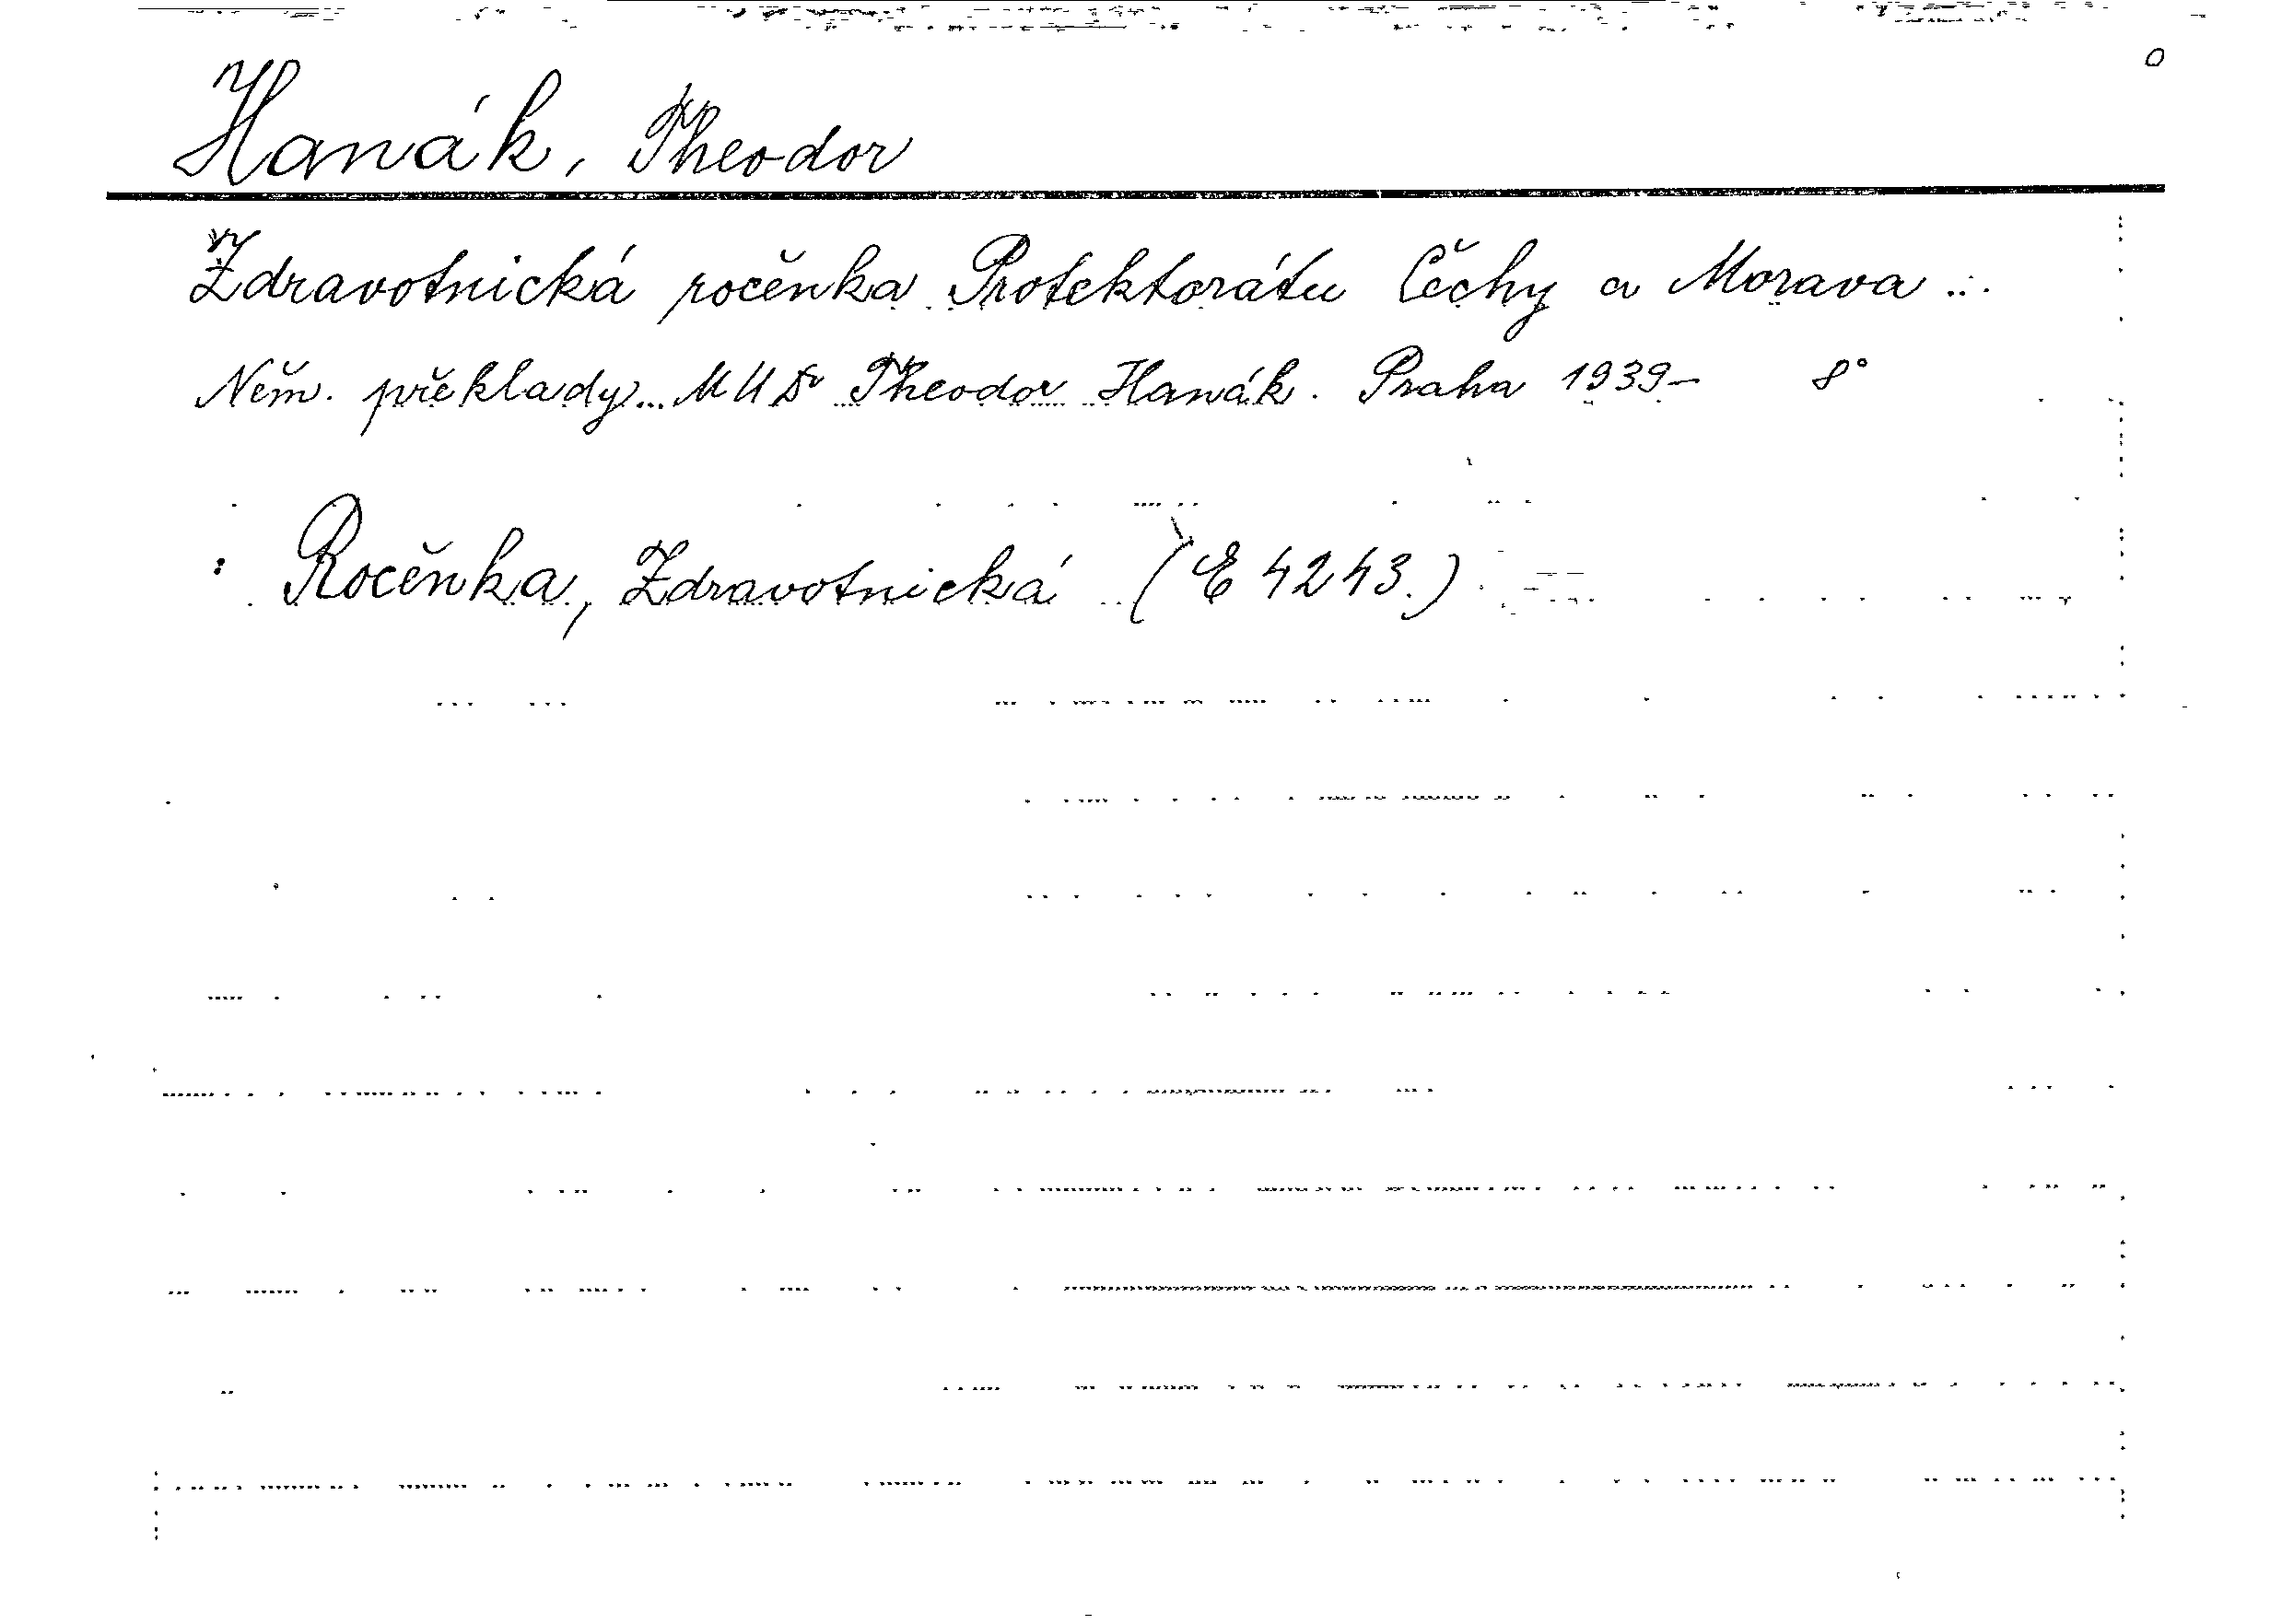 Hanák, Theodor
Zdravotnická ročenka Protektorátu Čechy a Morava ...
Něm. překlady... MUDr Theodor Hanák. Praha 1939- 8°
: Ročenka, Zdravotnická (E 4243.)